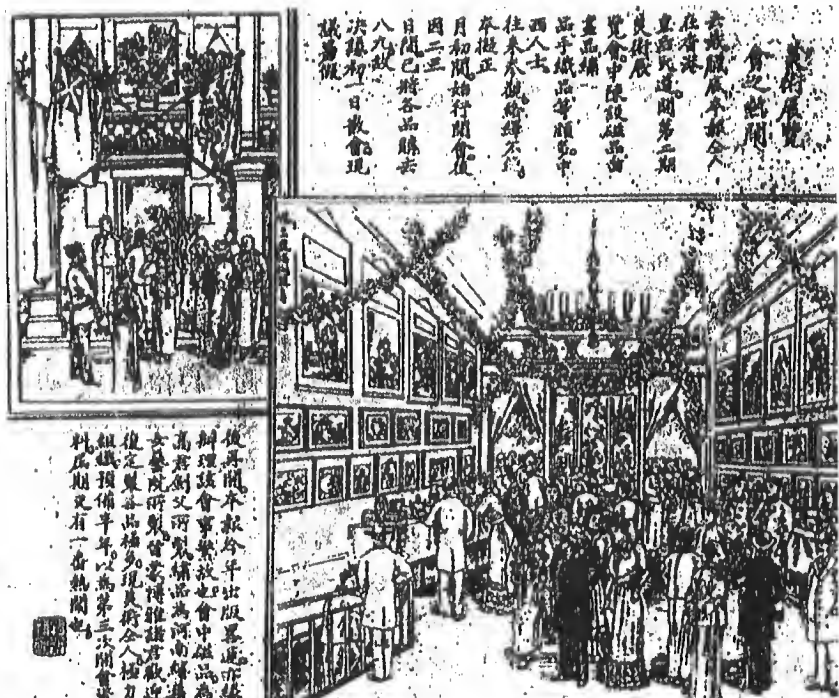 美術展覽
會之熱鬧
本報仝人
在香港
皇后大道開第二期
美術展
覽會中陳設磁品
畫品繡
品手織品等頗多中
西人士
往來參觀絡繹不絕
本擬正
月初間始行閉會後
因二三
日間已將各品購去
八九故
決議初一日散會現
議易假
復再開本報今年出版畧遲亦緣
辦理該會事繁故也會中磁品為
高君劍父所製繡品為河南
女藝院所製曾蒙博雅諸君歡迎
復定製各品極多現美術仝人極力
組織預備半年以為第三次開會資
料屆期又有一番熱鬧也